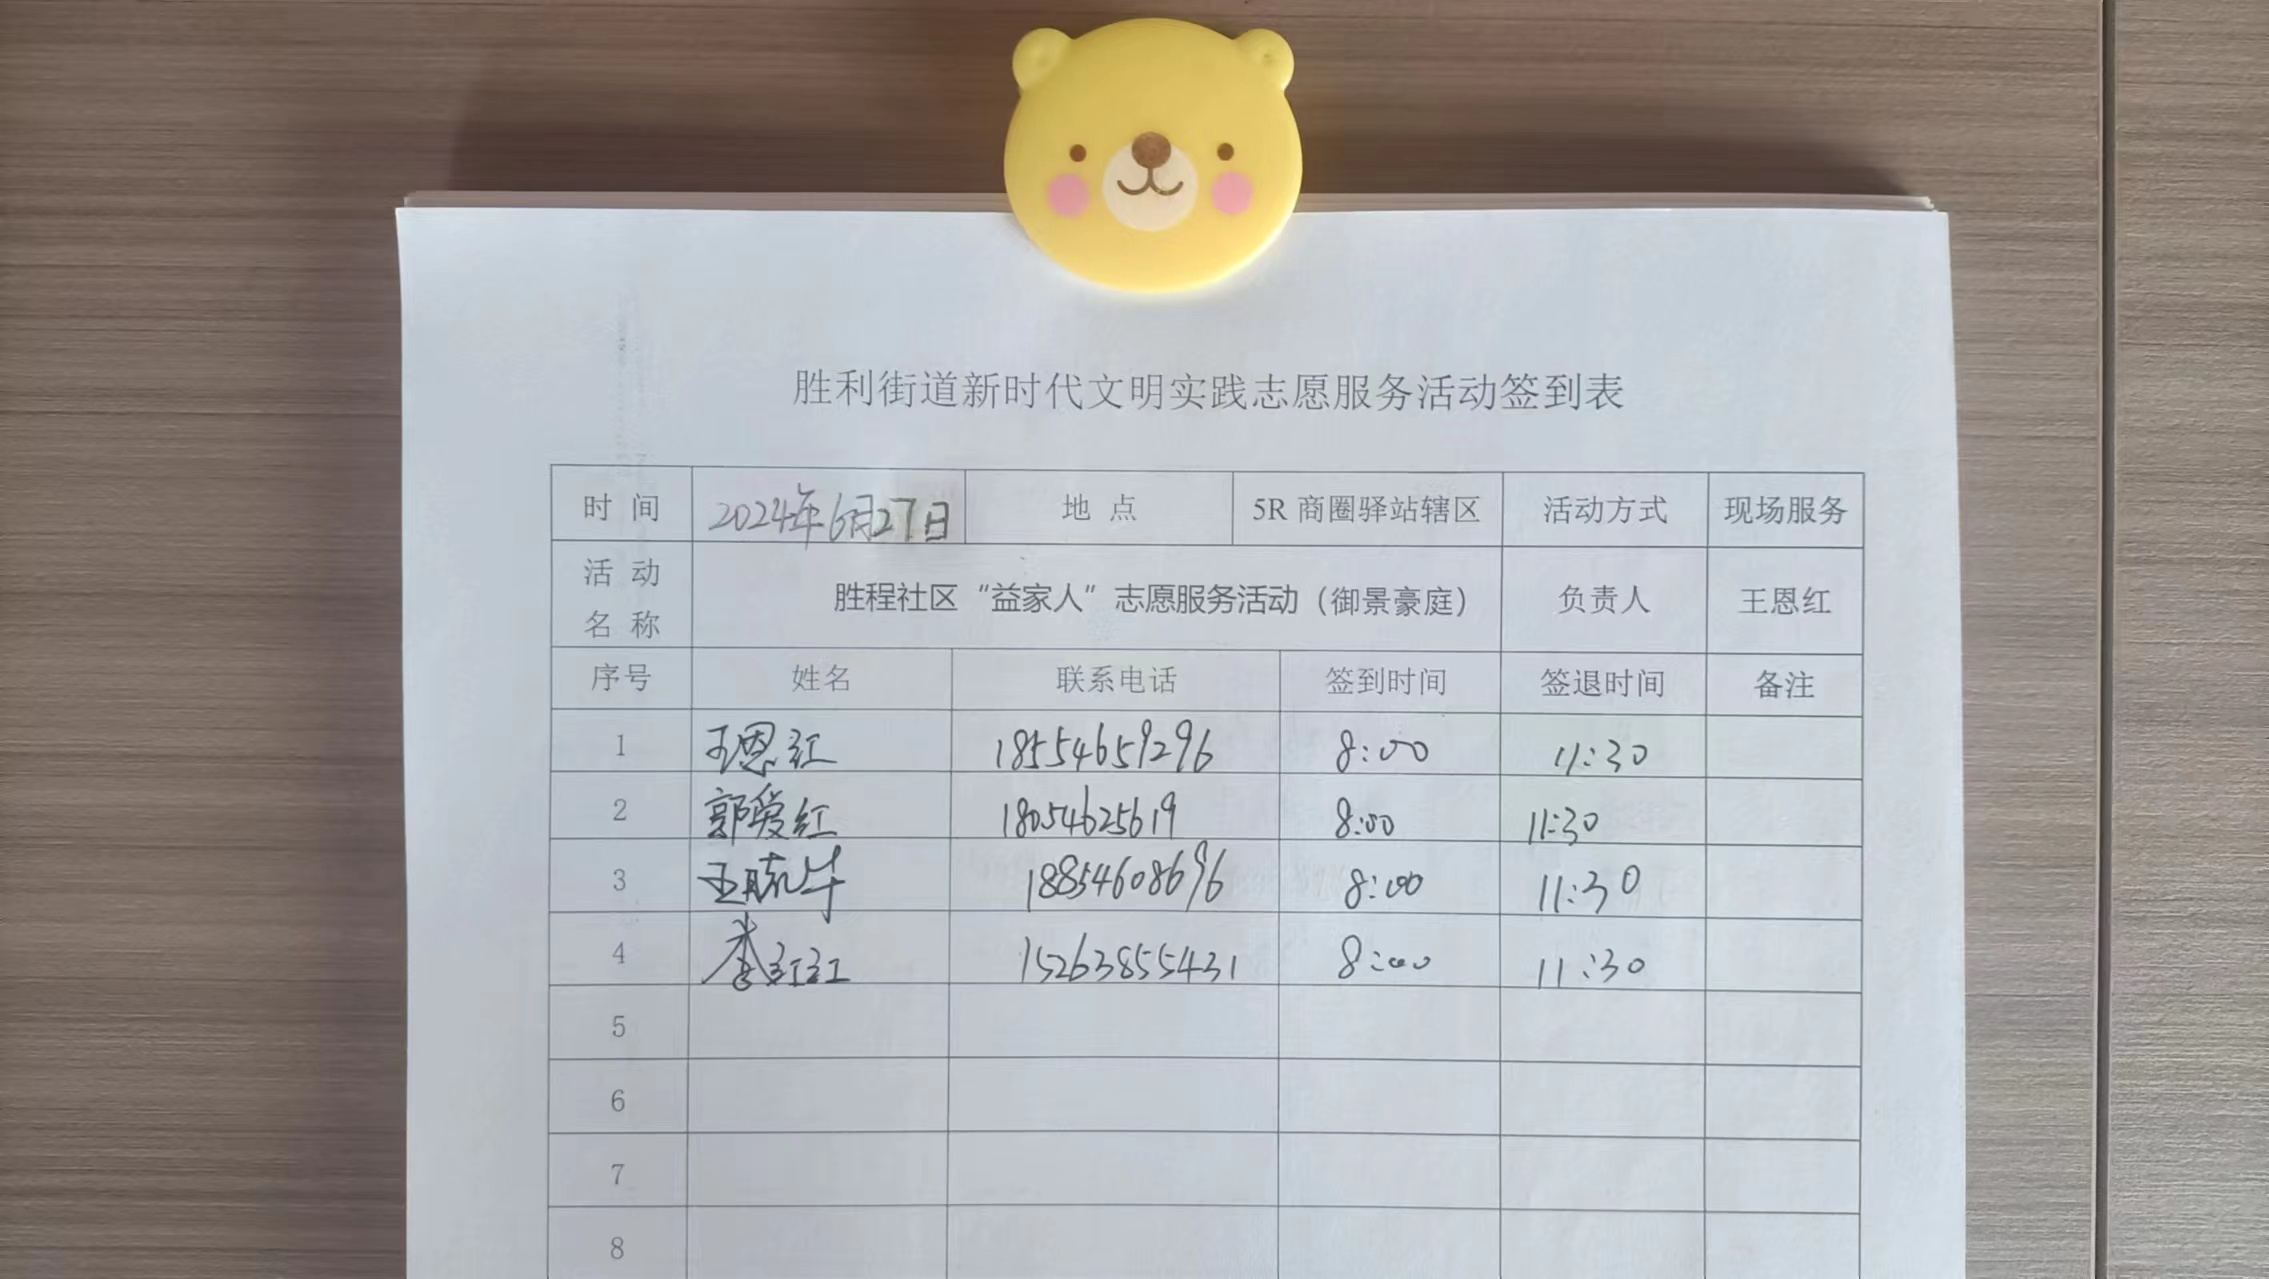 胜利街道新时代文明实践志愿服务活动签到表
时 间 2024年6月27日 地 点 5R 商圈驿站辖区 活动方式 现场服务
活 动
名 称 胜程社区“益家人”志愿服务活动（御景豪庭） 负责人 王恩红
序号 姓名 联系电话 签到时间 签退时间 备注
1 王恩红 18554659296 8:00 11:30
2 郭爱红 18054625619 8:00 11:30
3 王 18854608696 8:00 11:30
4 李红红 15263855431 8:00 11:30
5
6
7
8